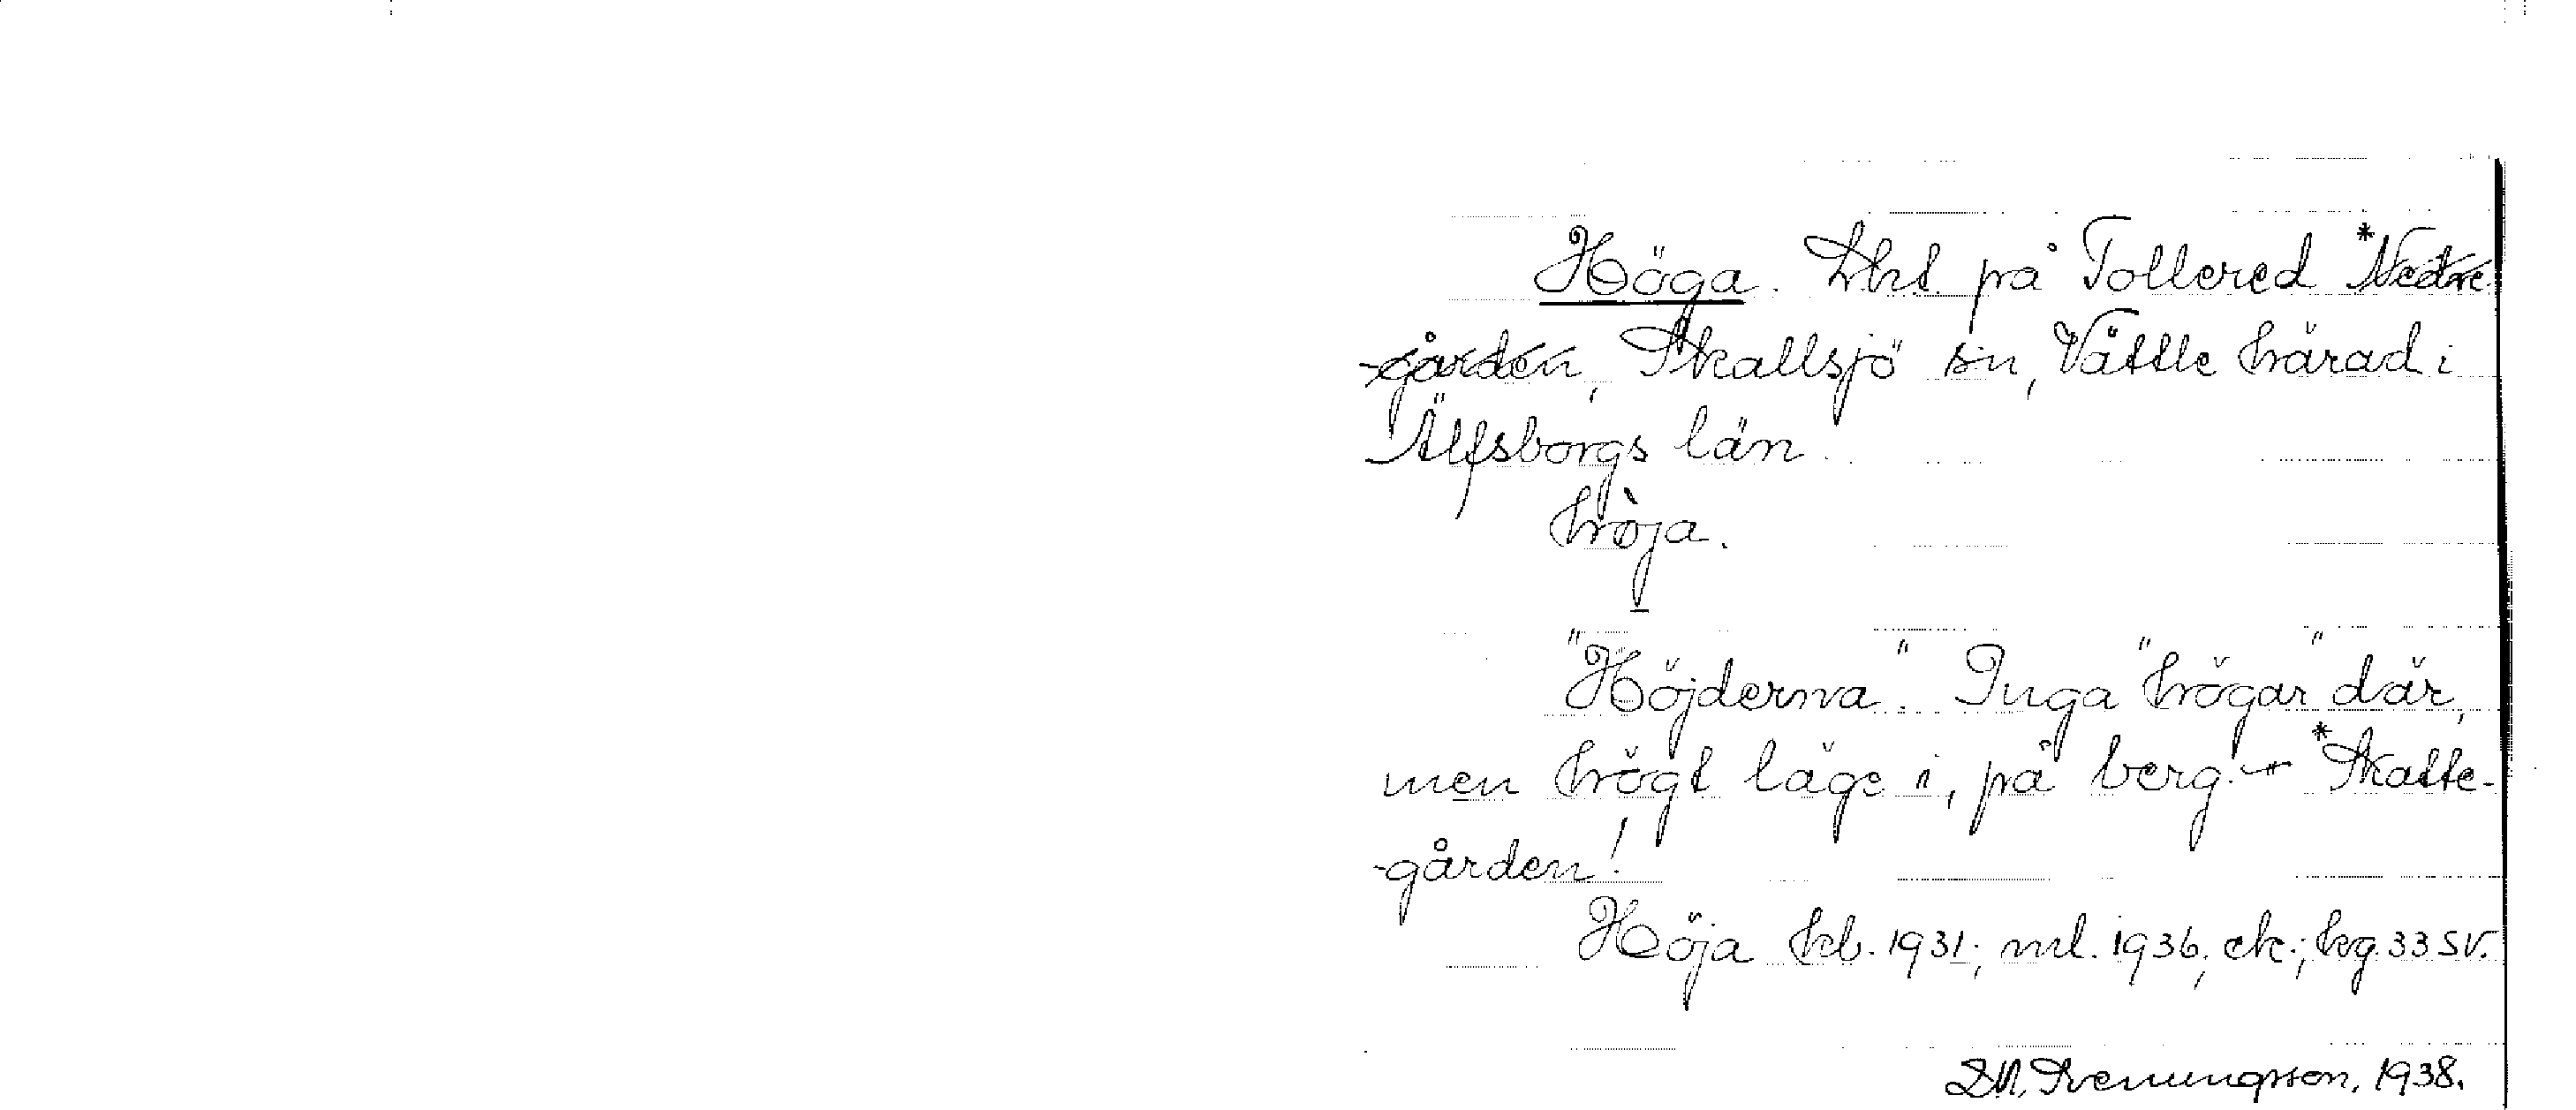 Höga. Lht. på Tollered *Nedre-
-gården, Skallsjö sn, Vättle härad i
Älfsborgs län.
hö̀ja.
"Höjderna". Inga "högar" där,
men högt läge i, på berg. *Skatte-
-gården!
Höja kb. 1931; ml. 1936, ek.; kg. 33 SV.
Svenungsson, 1938.